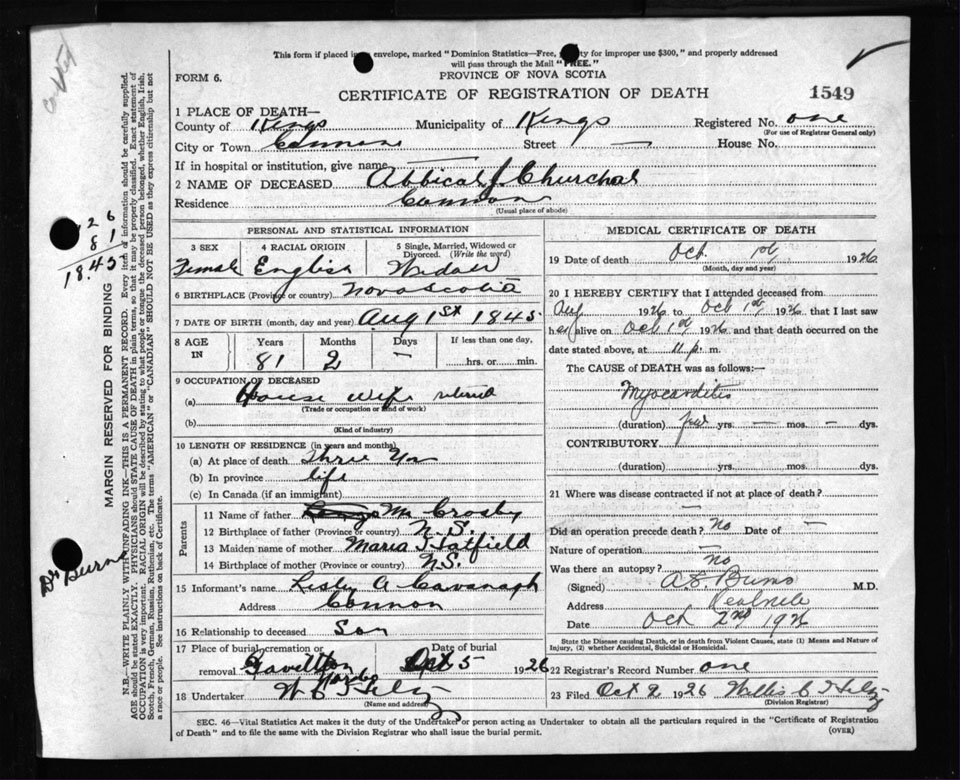 This form if placed in an envelope, marked "Dominion Statistics—Free, for improper use $300," and properly addressed
will pass through the Mail "FREE."
FORM 6.
PROVINCE OF NOVA SCOTIA
CERTIFICATE OF REGISTRATION OF DEATH
1549
1 PLACE OF DEATH—
County of Kings Municipality of Kings Registered No. one
(For use of Registrar General only)
City or Town Street — House No.
If in hospital or institution, give name
2 NAME OF DECEASED Abbical J. Churchal
Residence
(Usual place of abode)
PERSONAL AND STATISTICAL INFORMATION
3 SEX 4 RACIAL ORIGIN 5 Single, Married, Widowed or Divorced. (Write the word)
Female English
6 BIRTHPLACE (Province or country) Nova Scotia
7 DATE OF BIRTH (month, day and year) Aug 1st 1845
8 AGE IN Years Months Days If less than one day,
81 2 — hrs. or min.
9 OCCUPATION OF DECEASED
(a) House wife retired
(Trade or occupation or kind of work)
(b)
(Kind of industry)
10 LENGTH OF RESIDENCE (in years and months)
(a) At place of death Three Yrs
(b) In province life
(c) In Canada (if an immigrant)
Parents
11 Name of father M. Crosby
12 Birthplace of father (Province or country) N.S.
13 Maiden name of mother Maria Hatfield
14 Birthplace of mother (Province or country) N.S.
15 Informant's name Lesley A Cavanagh
Address
16 Relationship to deceased Son
17 Place of burial, cremation or removal Date of burial
5 1926
18 Undertaker
(Name and address)
MEDICAL CERTIFICATE OF DEATH
19 Date of death Oct. 1st 1926.
(Month, day and year)
20 I HEREBY CERTIFY that I attended deceased from
Aug 1926 to Oct 1st 1926. that I last saw
her alive on Oct 1st 1926 and that death occurred on the
date stated above, at 11 p. m.
The CAUSE of DEATH was as follows:—
Myocarditis
(duration) few yrs. — mos. — dys.
CONTRIBUTORY
(duration) yrs. mos. dys.
21 Where was disease contracted if not at place of death?
—
Did an operation precede death? No Date of —
Nature of operation —
Was there an autopsy? No
(Signed) A.S. Burns M.D.
Address
Date Oct 2nd 1926
State the Disease causing Death, or in death from Violent Causes, state (1) Means and Nature of
Injury, (2) whether Accidental, Suicidal or Homicidal.
22 Registrar's Record Number one
23 Filed Oct 2 1926 Willis C Hiltz
(Division Registrar)
SEC. 46—Vital Statistics Act makes it the duty of the Undertaker or person acting as Undertaker to obtain all the particulars required in the "Certificate of Registration
of Death" and to file the same with the Division Registrar who shall issue the burial permit.
(OVER)
26
81
1845
Dr Burns
MARGIN RESERVED FOR BINDING
N.B.—WRITE PLAINLY WITH UNFADING INK—THIS IS A PERMANENT RECORD. Every item of information should be carefully supplied.
AGE should be stated EXACTLY. PHYSICIANS should STATE CAUSE OF DEATH in plain terms, so that it may be properly classified. Exact statement of
OCCUPATION is very important. RACIAL ORIGIN will be described by stating to what people or tongue the deceased person belonged, whether English, Irish,
Scotch, French, German, Russian, Ruthenian, etc. The terms "AMERICAN" or "CANADIAN" SHOULD NOT BE USED as they express citizenship but not
a race or people. See instructions on back of Certificate.